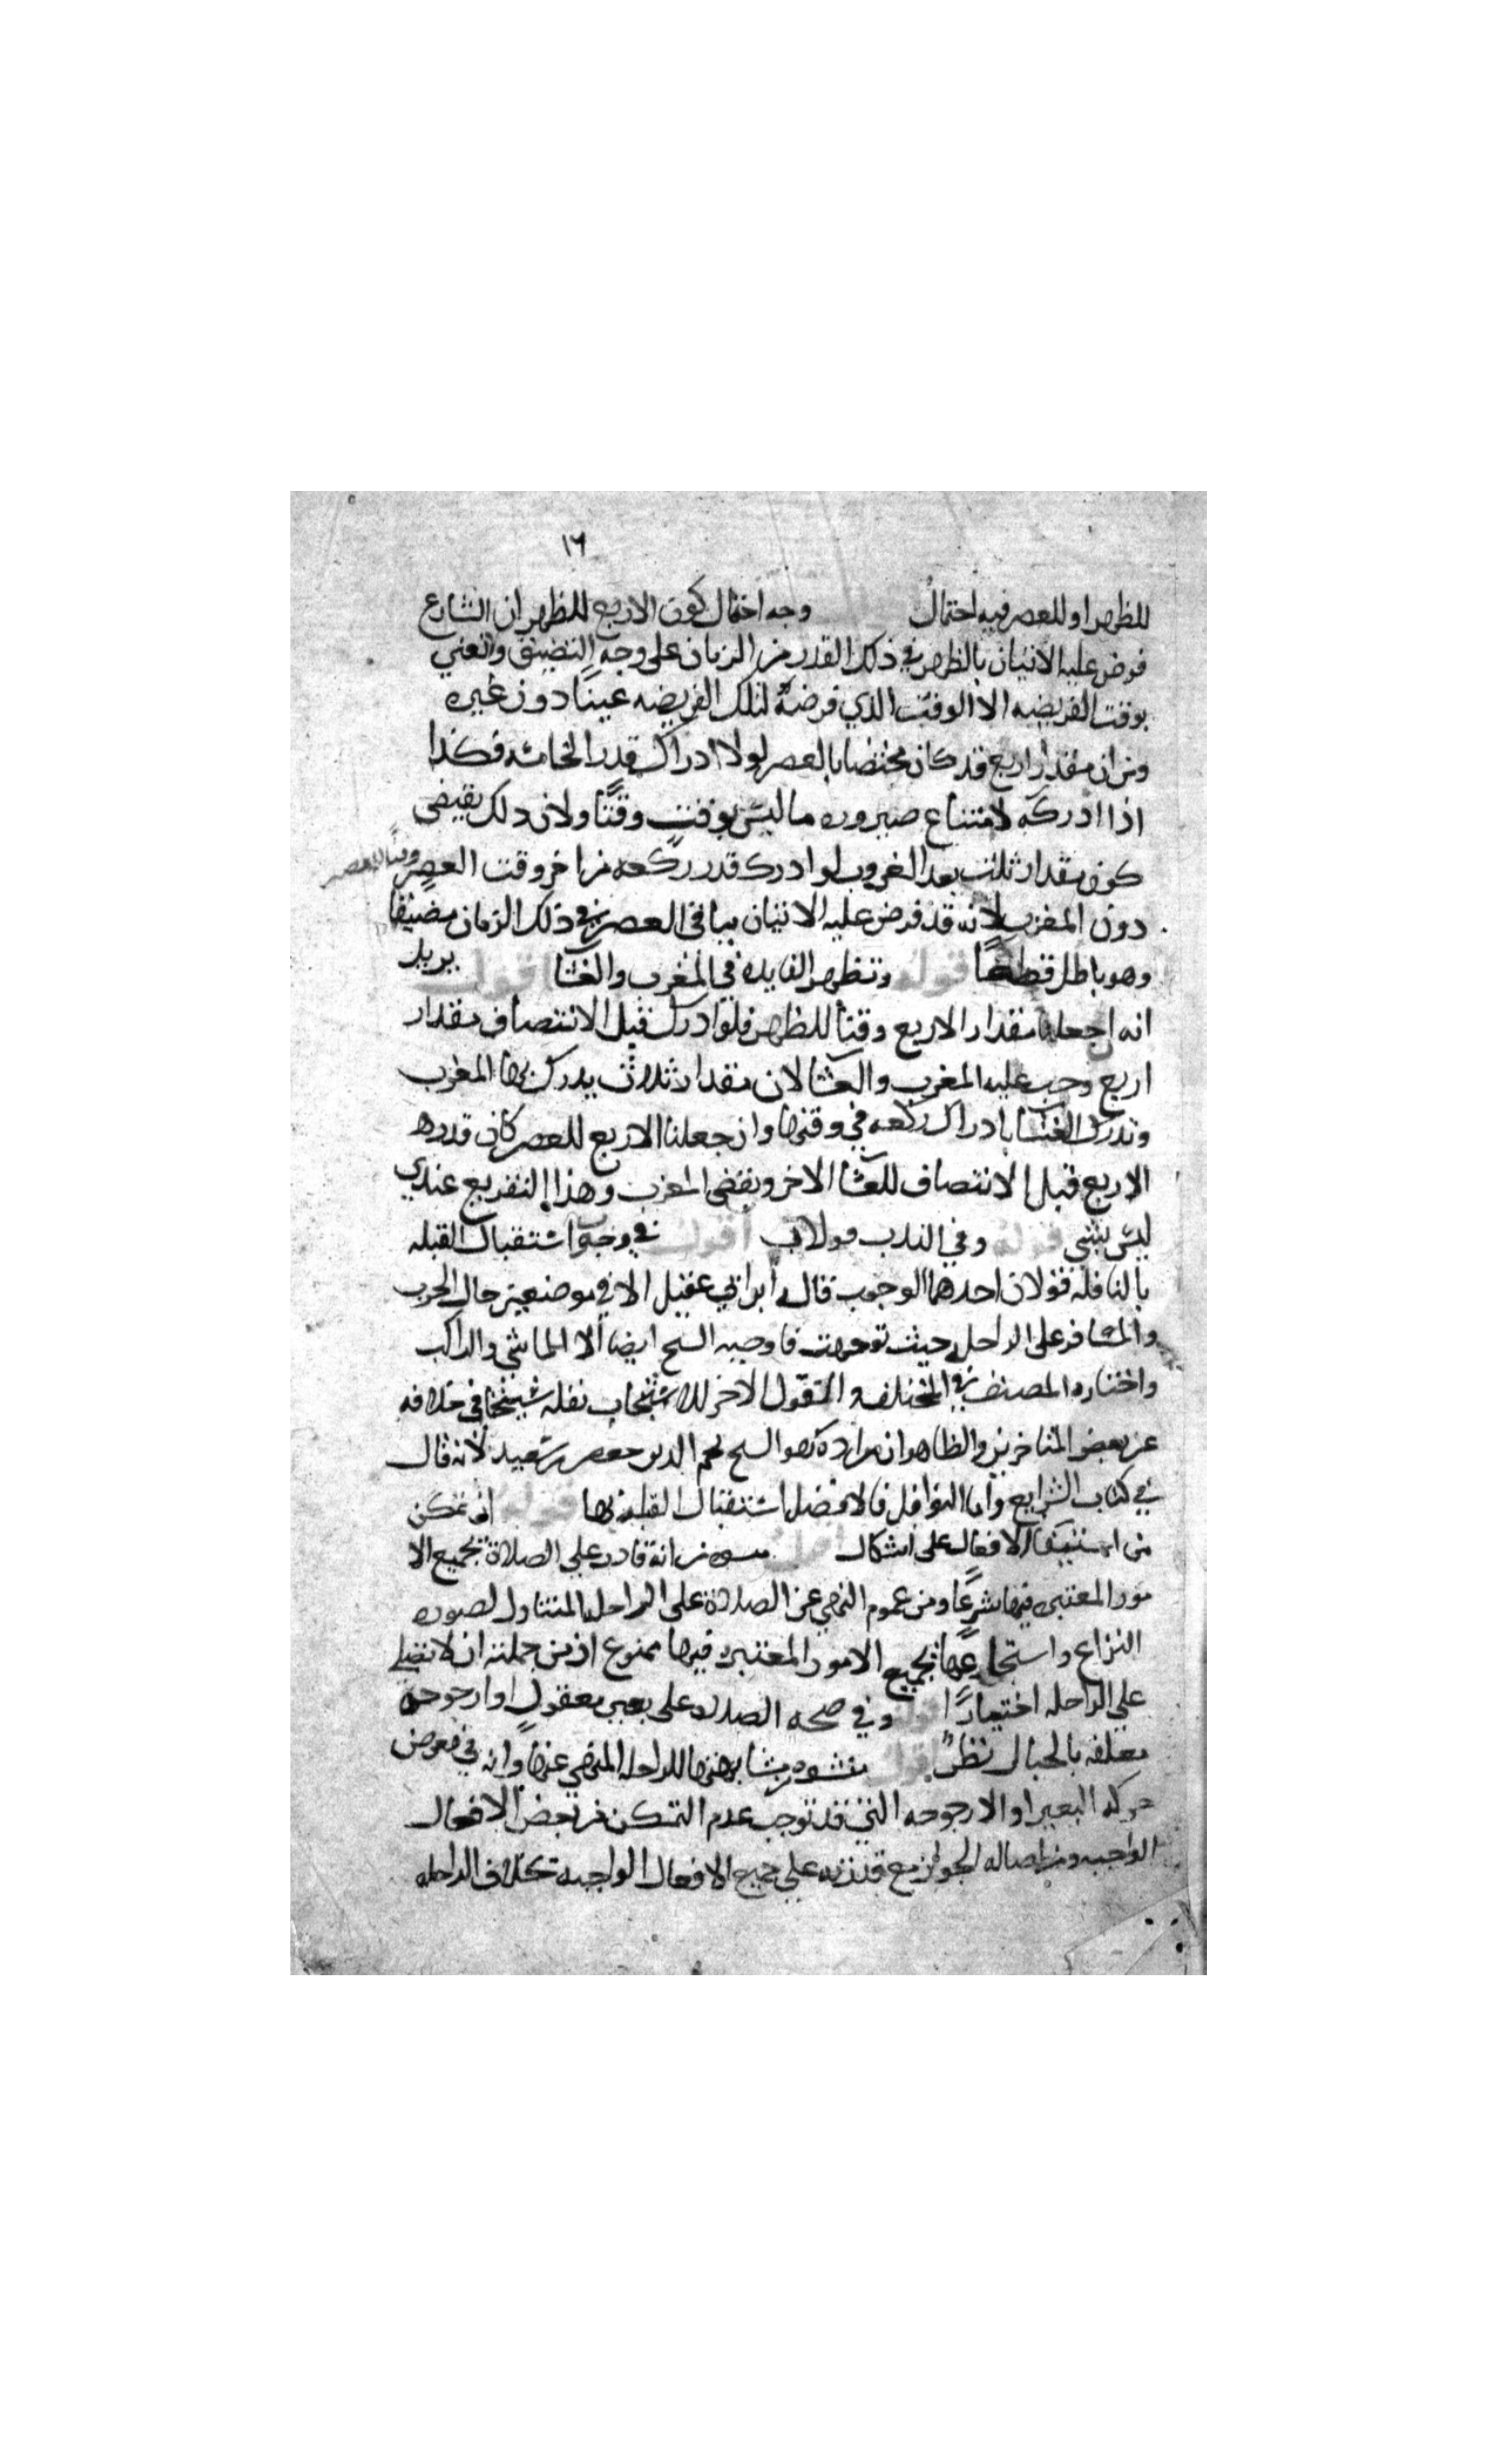 ١٦
للظهر او للعصر فيه احتمال وجه احتمال كون الاربع للظهر ان الشارع
فرض عليه الاتيان بالظهر في ذلك القدر من الزمان على وجه التضييق ولا نعني
بوقت الفريضه الا الوقت الذي فرضه لتلك الفريضه عينا دون غيره
ومن ان مقدار اربع قد كان مختصا بالعصر لولا ادراك قدر الخامسه فكذا
اذا ادركه لامتناع صيروره ما ليس بوقت وقتا ولان ذلك يقتضي
كون مقدار ثلث بعد الغروب لو ادرك قدر ركعه من اخر وقت العصر وقتا للعصر
دون المغرب لانه قد فرض عليه الاتيان بباقي العصر في ذلك الزمان مضيقا
وهو باطل قطعا قوله وتظهر الفايده في المغرب والعشا اقول يريد
انه ان جعلنا مقدار الاربع وقتا للظهر فلو ادرك قبل الانتصاف مقدار
اربع وجب عليه المغرب والعشا لان مقدار ثلاث يدرك بها المغرب
وتدرك العشا بادراك ركعه في وقتها وان جعلنا الاربع للعصر كان قدر هذه
الاربع قبل الانتصاف للعشا الاخر ويقضي المغرب وهذا التفريع عندي
ليس بشي قوله وفي الندب قولان اقول في وجوب استقبال القبله
بالنافله قولان احدهما الوجوب قاله ابن ابي عقيل الا في موضعين حال الحرب
والمسافر على الراحله حيث توجهت فاوجبه الشيخ ايضا الا الماشي والراكب
واختاره المصنف في المختلف والقول الاخر للاستحباب نقله شيخنا في خلافه
عن بعض المتاخرين والظاهر ان مراده به هو الشيخ نجم الدين جعفر بن سعيد لانه قال
في كتاب الشرايع واما النوافل فالافضل استقبال القبله بها قوله ان تمكن
من استيفا الافعال على اشكال اقول ينشو من انه قادر على الصلاة بجميع الا
مور المعتبره فيها شرعا ومن عموم النهي عن الصلاة على الراحله المتناول لصوره
النزاع واستجماعها بجميع الامور المعتبره فيها ممنوع اذ من جملته ان لا تصلي
على الراحله اختيارا قوله وفي صحه الصلاه على بعير معقول او ارجوحه
معلقه بالحبال نظر اقول ينشو من مشابهتها للراحله المنهي عنها وانه في معرض
حركه البعير او الارجوحه التي قد توجب عدم التمكن من بعض الافعال
الواجبه ومن اصاله الجواز مع قدرته على جميع الافعال الواجبه بخلاف الراحله